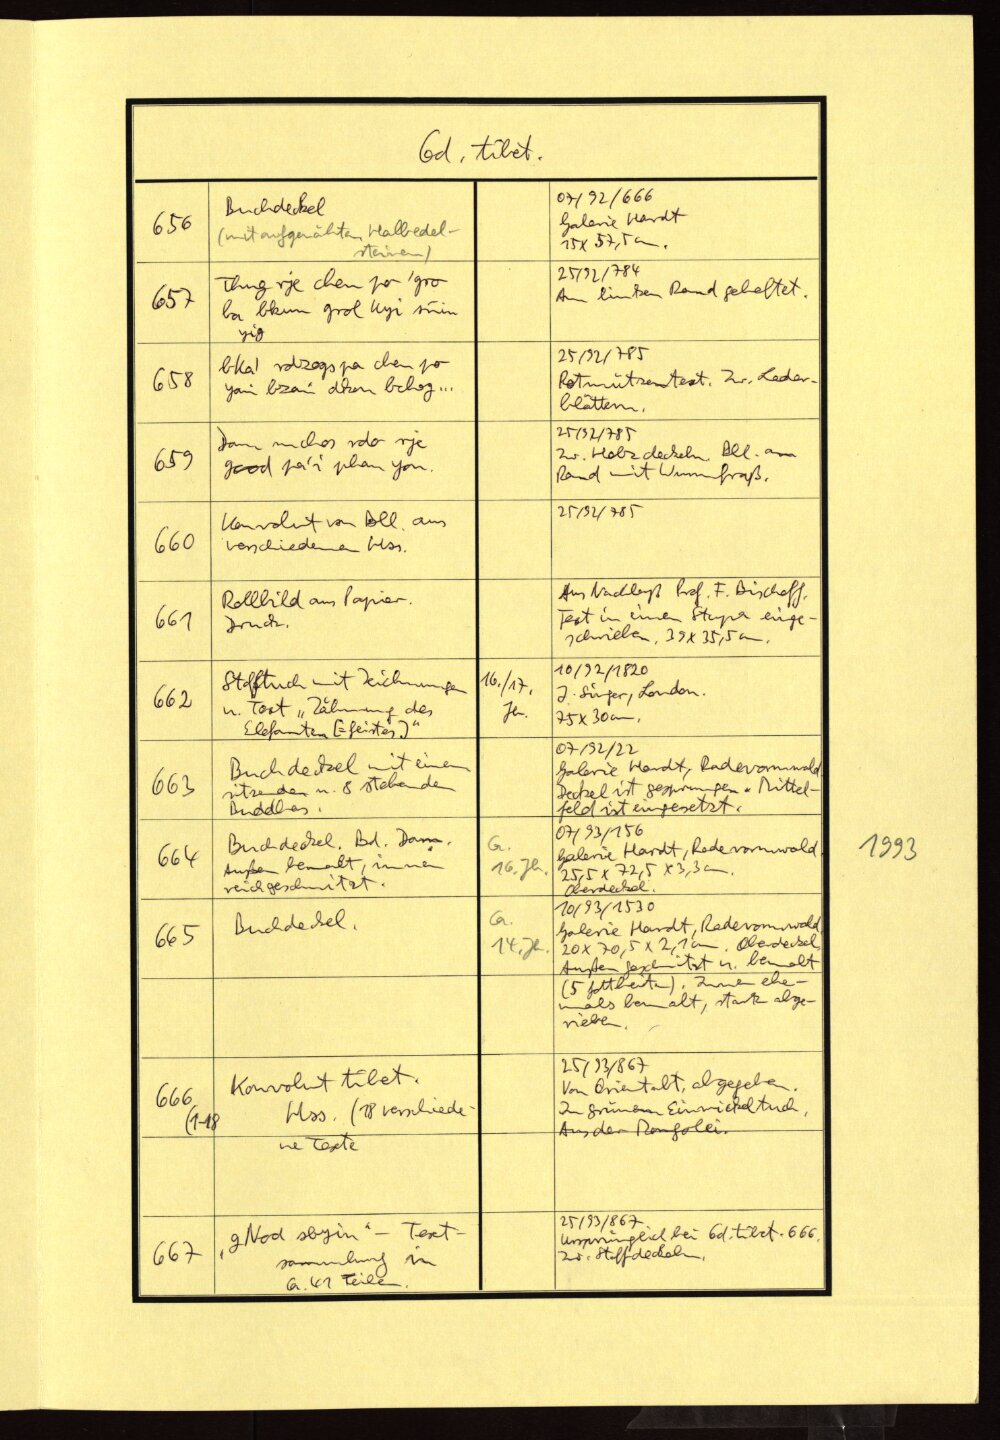 Cod. tibet.
656
Buchdeckel
(mit aufgenähten Halbedel-
steinen)
07/92/666
Galerie Hardt
15 x 57,5 cm.
657
Thugs rje chen po 'gro
ba bkun grol kyi sñin
yig
25/92/784
Am linken Rand geheftet.
658
bKa' rdzogs pa chen po
yan bzan dkon bchog...
25/92/785
Rotmützentext. Zw. Leder-
blättern.
659
Dam m chos rdo rje
gcod pa'i phan yon.
25/92/785
Zw. Holzdeckeln. Bll. am
Rand mit Wurmfraß.
660
Konvolut von Bll. aus
verschiedenen Hss.
25/92/785
661
Rollbild aus Papier.
Druck.
Aus Nachlaß Prof. F. Bischoff.
Text in einen Stupa einge-
schrieben. 39 x 35,5 cm.
662
Stofftuch mit Zeichnungen
u. Text „Zähmung des
Elefanten [=Geistes]"
16./17.
Jh.
10/92/1820
J. Singer, London.
75 x 30 cm.
663
Buchdeckel mit einem
sitzenden u. 8 stehenden
Buddhas.
07/92/22
Galerie Hardt, Radevormwald.
Deckel ist gesprungen. Mittel-
feld ist eingesetzt.
664
Buchdeckel. Bd. Dam.
Außen bemalt, innen
reich geschnitzt.
Ca.
16. Jh.
07/93/156
Galerie Hardt, Radevormwald.
25,5 x 72,5 x 3,3 cm.
Oberdeckel.
1993
665
Buchdeckel.
Ca.
14. Jh.
10/93/1530
Galerie Hardt, Radevormwald
20 x 70,5 x 2,1 cm. Oberdeckel.
Außen geschnitzt u. bemalt
(5 Gottheiten). Innen ehe-
mals bemalt, stark abge-
rieben.
666
(1-18
Konvolut tibet.
Hss. (18 verschiede-
ne Texte
25/93/867
Von Orientabt. abgegeben.
In grünem Einwickeltuch.
Aus der Mongolei.
667
„gNod sbyin" – Text-
sammlung in
Ca. 41 Teilen.
25/93/867
Ursprünglich bei Cod. tibet. 666.
Zw. Stoffdeckeln.